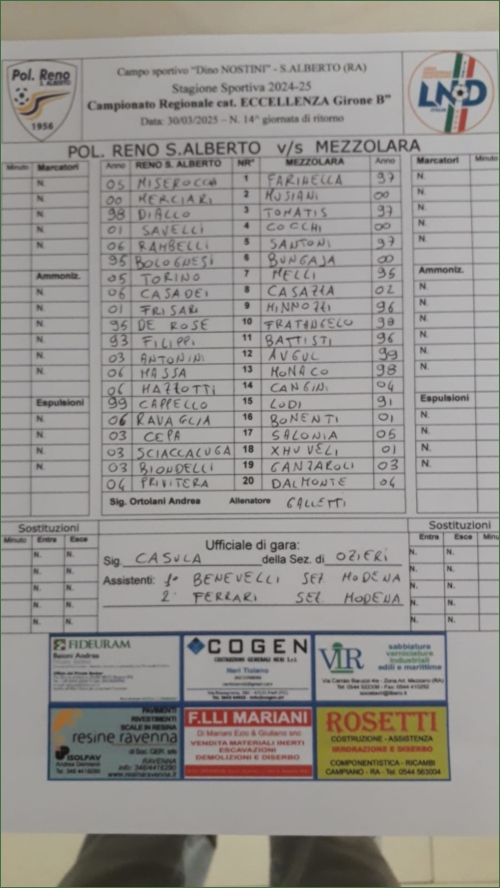 Pol. Reno
S. ALBERTO
1956
Campo sportivo "Dino NOSTINI" - S.ALBERTO (RA)
Stagione Sportiva 2024-25
Campionato Regionale cat. ECCELLENZA Girone B"
Data: 30/03/2025 – N. 14° giornata di ritorno
LND
POL. RENO S.ALBERTO v/s MEZZOLARA
Minuto Marcatori Anno RENO S. ALBERTO NR° MEZZOLARA Anno Marcatori Minuto
N. 05 MISEROCCHI 1 FARINELLA 97 N.
N. 00 MERCIARI 2 MUSIANI 00 N.
N. 98 DIALLO 3 TOMATIS 97 N.
N. 01 SAVELLI 4 COCCHI 00 N.
N. 06 RAMBELLI 5 SANTONI 97 N.
95 BOLOGNESI 6 BUNGAJA 00
Ammoniz. 05 TORINO 7 MELLI 95 Ammoniz.
N. 06 CASADEI 8 CASAZZA 02 N.
N. 01 FRISARI 9 MINNOZZI 96 N.
N. 95 DE ROSE 10 FRATANGELO 98 N.
N. 93 FILIPPI 11 BATTISTI 96 N.
N. 03 ANTONINI 12 AVGUL 99 N.
N. 06 MASSA 13 MONACO 98 N.
06 MAZZOTTI 14 CANGINI 04
Espulsioni 99 CAPPELLO 15 LODI 91 Espulsioni
N. 06 RAVAGLIA 16 BONENTI 01 N.
N. 03 CEPA 17 SALONIA 05 N.
N. 03 SCIACCALUGA 18 XHUVELI 01 N.
N. 03 BIONDELLI 19 GANZAROLI 03 N.
04 PRIVITERA 20 DALMONTE 04
Sig. Ortolani Andrea Allenatore GALLETTI
Sostituzioni Sostituzioni
Minuto Entra Esce Entra Esce Minu
N. N. N. N.
N. N. N. N.
N. N. N. N.
N. N. N. N.
N. N. N. N.
Ufficiale di gara:
Sig. CASULA della Sez. di OZIERI
Assistenti: 1° BENEVELLI SEZ MODENA
2° FERRARI SEZ. MODENA
FIDEURAM
COGEN
COSTRUZIONI GENERALI NERI S.r.l.
Neri Tiziano
VIR
sabbiature
verniciature
industriali
edili e marittime
PAVIMENTI
RIVESTIMENTI
SCALE IN RESINA
resine ravenna
di Soc. GER. srls
ISOLPAV
RAVENNA
F.LLI MARIANI
Di Mariani Ezio & Giuliano snc
VENDITA MATERIALI INERTI
ESCAVAZIONI
DEMOLIZIONI E DISERBO
ROSETTI
COSTRUZIONE - ASSISTENZA
IRRORAZIONE E DISERBO
COMPONENTISTICA - RICAMBI
CAMPIANO - RA - Tel. 0544 563004